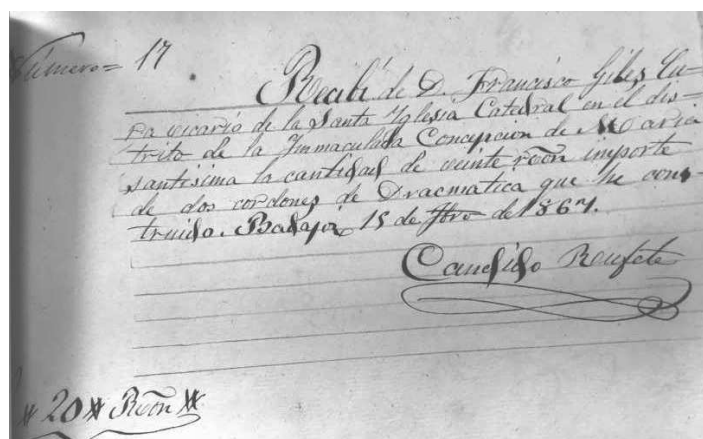 Numero= 17
Recibí de D. Francisco Giles Cu-
ra vicario de la Santa Yglesia Catedral en el dis-
trito de la Immaculada Concepcion de Maria
santisima la cantidad de veinte rvon importe
de dos cordones de Dracmatica que he cons-
truido. Badajoz 15 de de 1867.
Candido Rengfete
# 20 # Rvon #